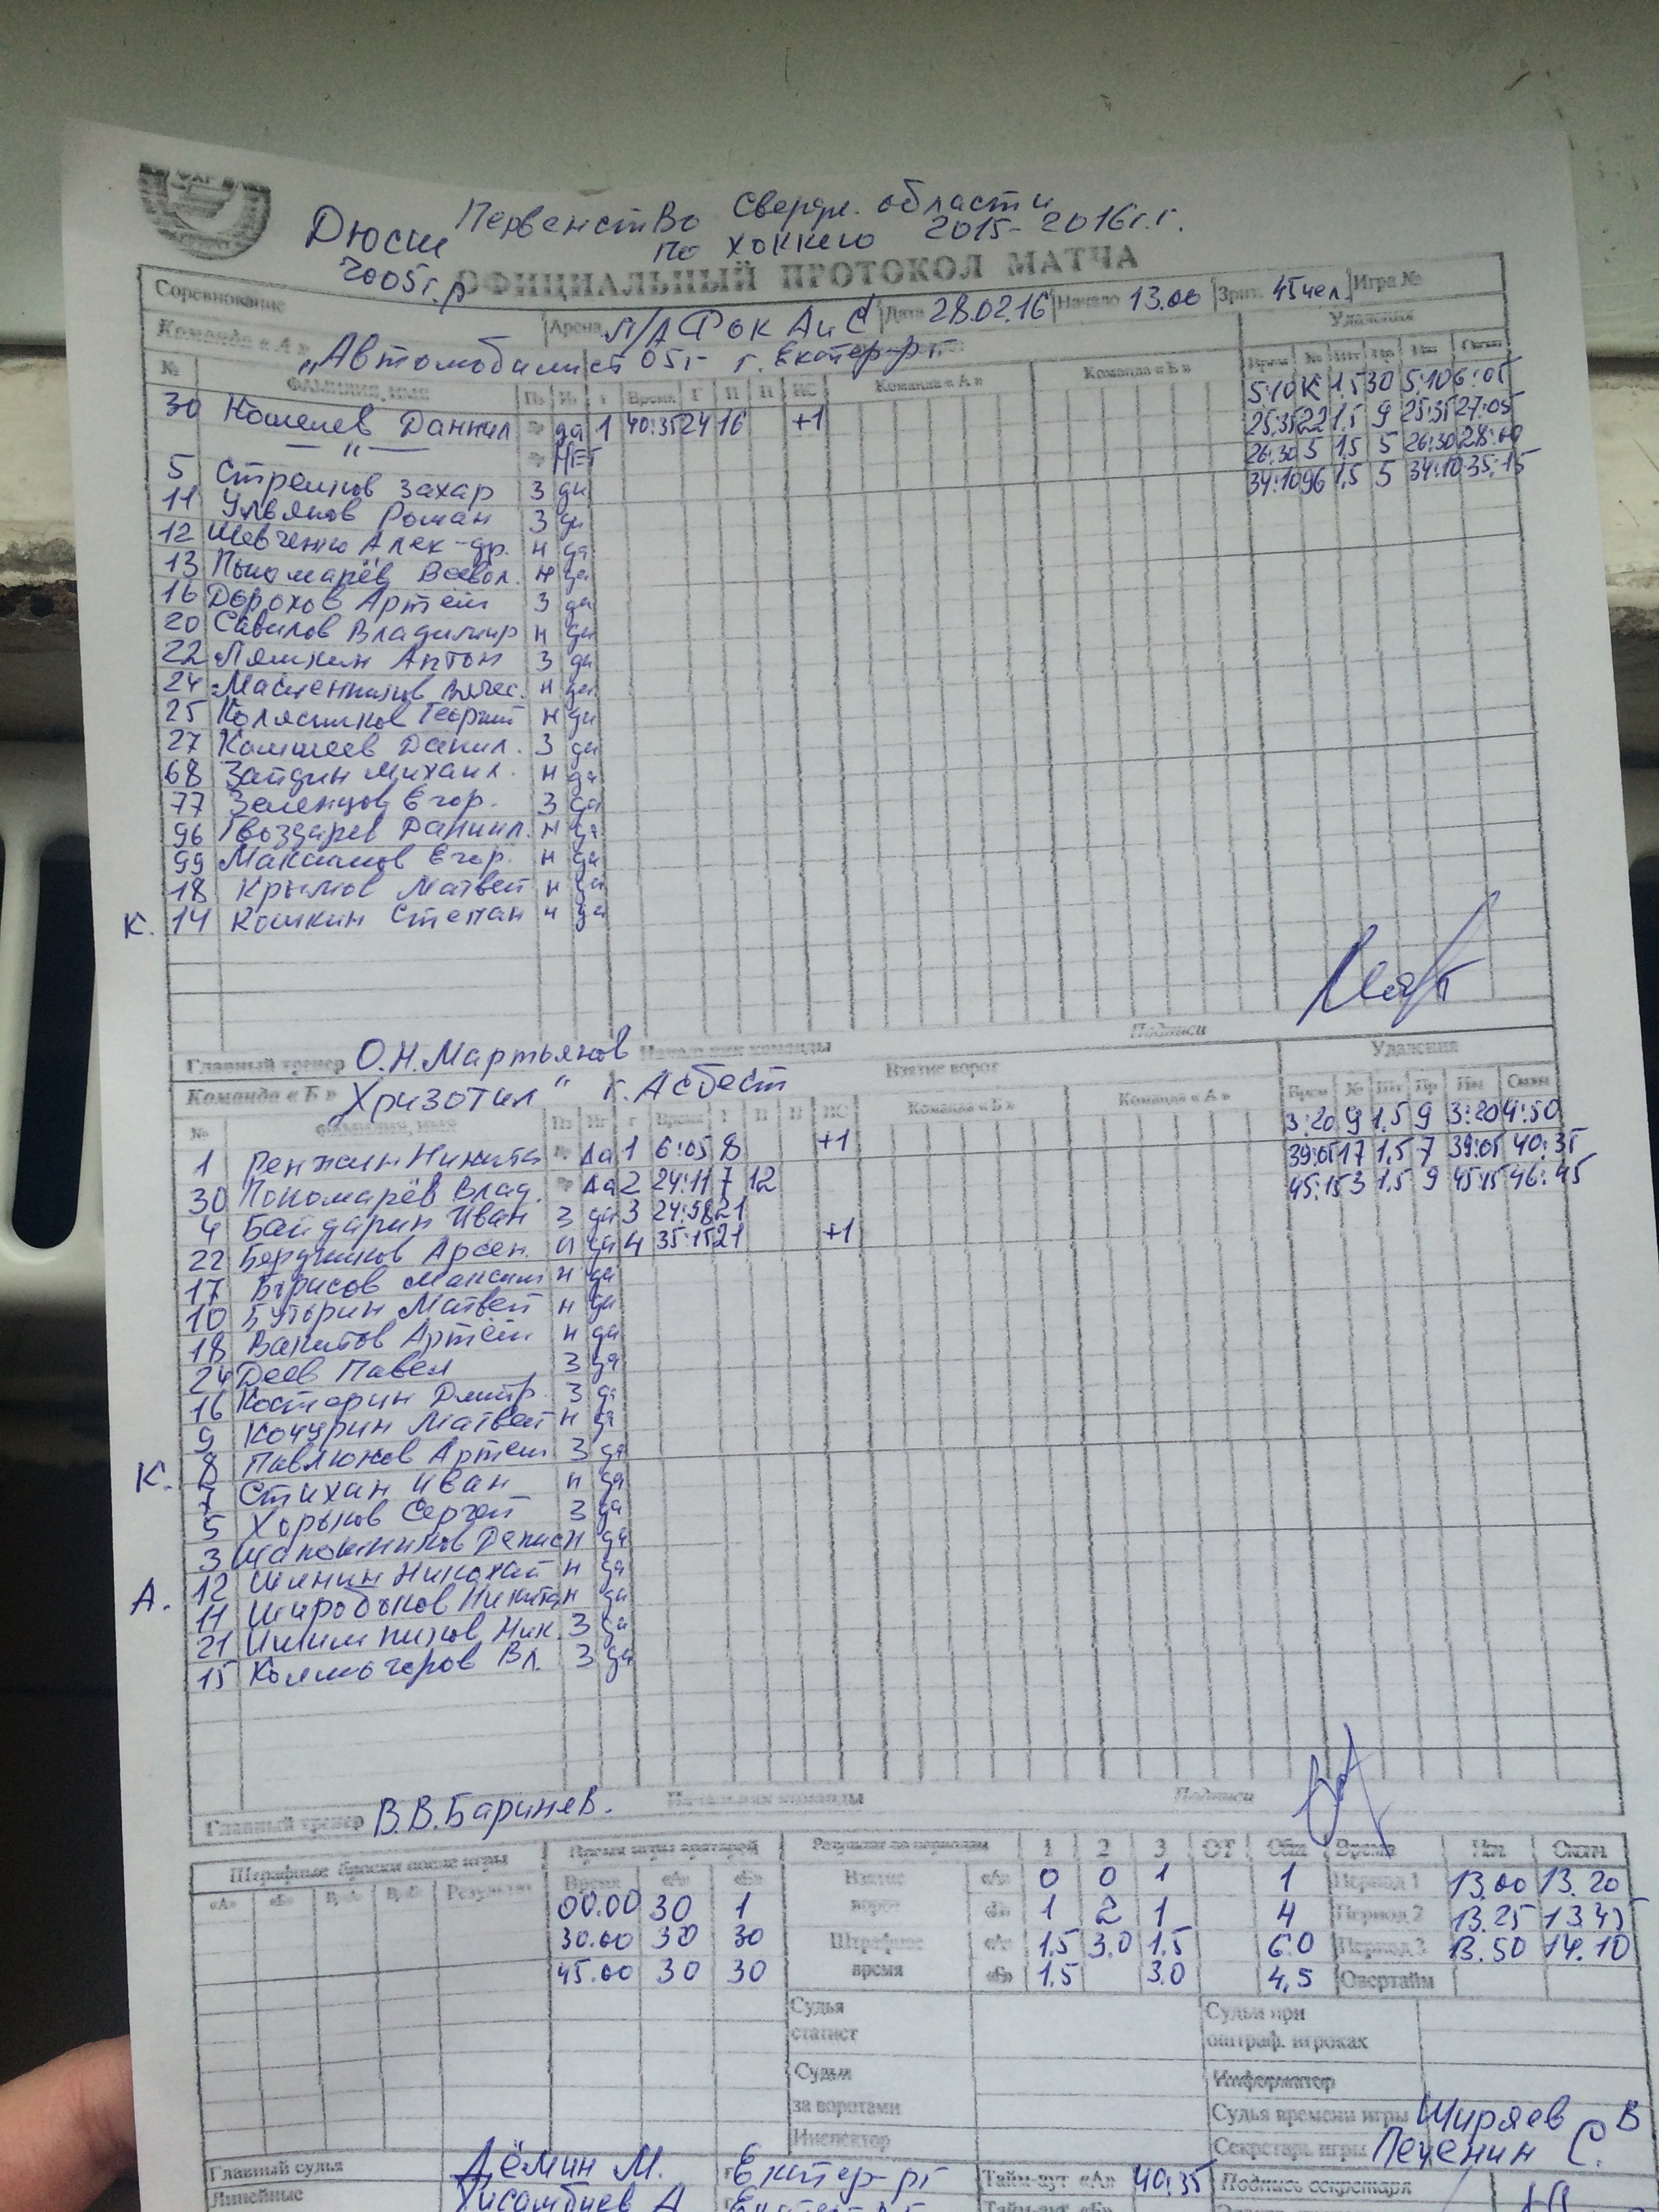 Первенство Свердл. области
Дюсш по хоккею 2015-2016г.г.
2005г.р ОФИЦИАЛЬНЫЙ ПРОТОКОЛ МАТЧА
Соревнование Арена Л/А Фок АиС Дата 28.02.16 Начало 13.00 Зрит. 45чел. Игра №
Команда «А» „Автомобилист 05г г. Екатер-рг Удаления
№ ФАМИЛИЯ, ИМЯ Пз Иг г Время Г П П ИС Команда «А» Команда «Б» Время № Шт Пр Нач Оконч
30 Кошелев Даниил Вр да 1 40:35 24 16 +1 5:10 К 1.5 30 5:10 6:05
— „ — Вр НЕТ 25:35 22 1,5 9 25:35 27:05
5 Стрелков Захар З да 26:30 5 1,5 5 26:30 28:00
11 Ульянов Роман З да 34:10 96 1,5 5 34:10 35:15
12 Шевченко Алек-др. Н да
13 Пономарёв Всевол. Н да
16 Дорохов Артём З да
20 Савилов Владимир Н да
22 Лямкин Антон З да
24 Вячес. Н да
25 Колясников Георгий Н да
27 Данил. З да
68 Зайдин Михаил. Н да
77 Зеленцов Егор. З да
96 Гвоздарев Даниил. Н да
99 Максимов Егор. Н да
18 Крымов Матвей Н да
К. 14 Кошкин Степан Н да
Подписи
Главный тренер О.Н.Мартьянов Начальник команды
Команда «Б» Хризотил" г. Асбест Взятие ворот Удаления
№ ФАМИЛИЯ, ИМЯ Пз Иг г Время Г П П ИС Команда «Б» Команда «А» Время № Шт Пр Нач Оконч
1 Ренжин Никита Вр Да 1 6:05 8 +1 3:20 9 1,5 9 3:20 4:50
30 Пономарёв Влад. Вр Да 2 24:11 7 12 39:05 17 1,5 7 39:05 40:35
4 Байдарин Иван З да 3 24:58 21 45:15 3 1,5 9 45:15 46:45
22 Бердников Арсен. Н да 4 35:15 21 +1
17 Борисов Максим Н да
10 Буторин Матвей Н да
18 Вахитов Артём Н да
24 Деев Павел З да
16 Костарин Дмитр. З да
9 Кочурин Матвей Н да
К. 8 Павлюков Артем З да
7 Стихин Иван Н да
5 Хорьков Сергей З да
3 Шапошников Денис Н да
12 Шинин Николай Н да
А. 11 Широбоков Никита Н да
21 Ник. З да
15 Колмогоров Вл. З да
Главный тренер В.В.Баринев. Начальник команды Подписи
Штрафные броски после игры Время игры вратарей Результат по периодам 1 2 3 ОТ Общ Время Нач. Оконч.
«А» «Б» Вр«А» Вр«Б» Результат Время «А» «Б» Взятие «А» 0 0 1 1 Период 1 13.00 13.20
00.00 30 1 ворот «Б» 1 2 1 4 Период 2 13.25 13.45
30.00 30 30 Штрафное «А» 1,5 3.0 1.5 6.0 Период 3 13.50 14.10
45.00 30 30 время «Б» 1,5 3.0 4,5 Овертайм
Судья статист Судьи при оштраф. игроках
Судьи за воротами Информатор
Судья времени игры Ширяев В
Инспектор Секретарь игры Печенин С.
Главный судья Дёмин М. Екатер-рг Тайм-аут «А» 40:35 Подпись секретаря
Линейные Хисамбиев А Тайм-аут «Б»